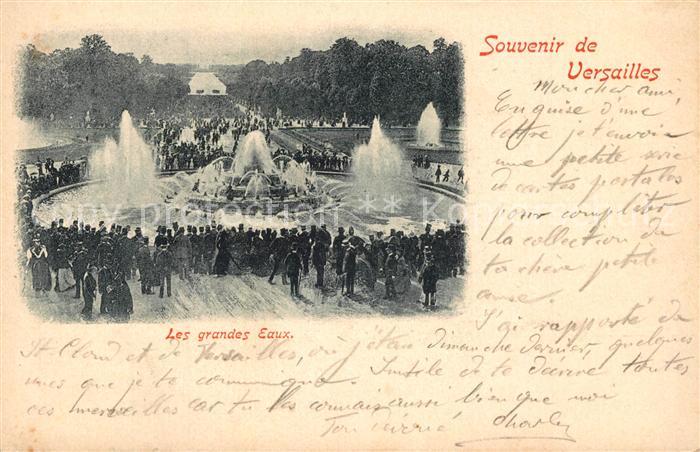 Souvenir de
Versailles
Mon cher ami
En guise d'une
lettre je t'envoie
une petite serie
de cartes postales
pour compléter
la collection de
ta chère petite
J'ai rapporté de
Les grandes Eaux.
St Cloud et de Versailles, où j'étais dimanche dernier, quelques
vues que je te communique. Inutile de te décrire toutes
ces merveilles car tu les connais aussi bien que moi
Ton dévoué Charley